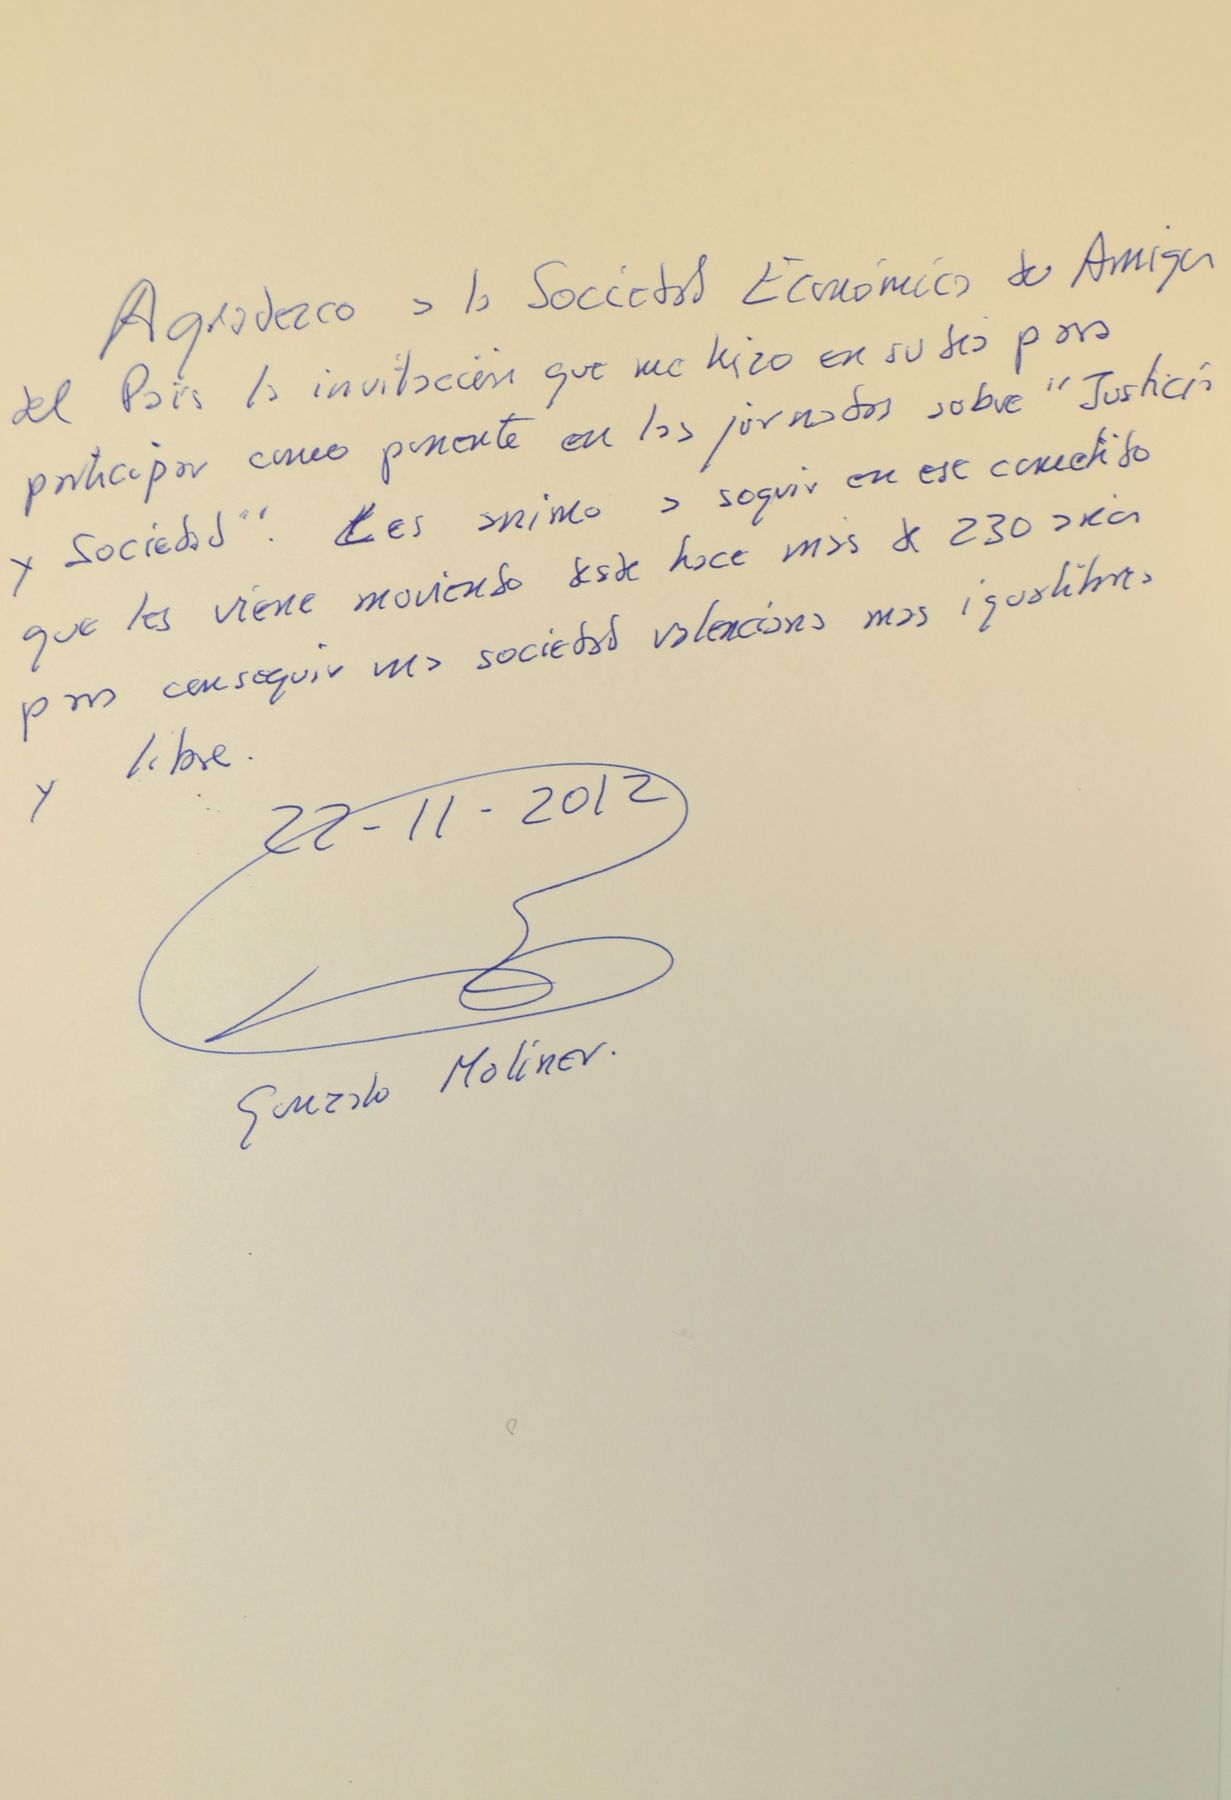 Agradezco a la Sociedad Económica de Amigos
del País la invitación que me hizo en su día para
participar como ponente en las jornadas sobre "Justicia
y Sociedad". Les animo a seguir en ese cometido
que les viene moviendo desde hace más de 230 años
para conseguir una sociedad valenciana mas igualitaria
y libre.
22-11-2012
Gonzalo Moliner.